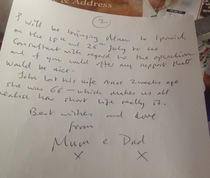 & Address
2
I will be bringing Mum to Ipswich
on the 19th and 26th July to see
Consultant with regard to the operation
and if you could offer any support that
would be nice.
John lost his wife 2 weeks ago
she was 66 – which makes us all
realise how short life really is.
Best wishes and love
from
Mum & Dad
x x